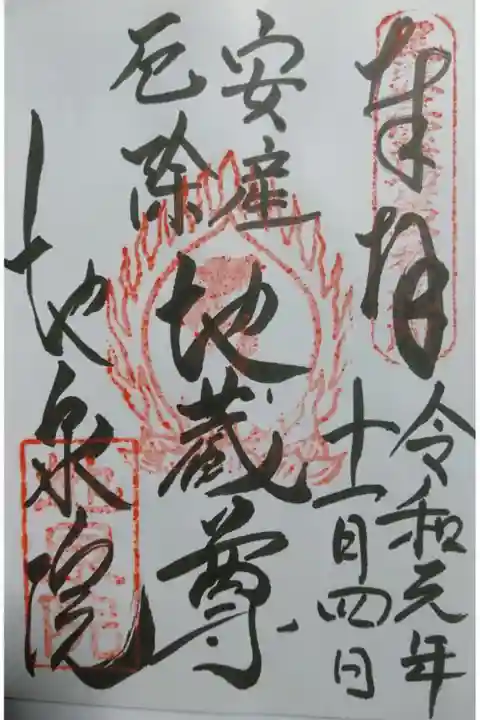 奉拝
令和元年
十一月四日
安産
厄除
地蔵尊
地泉院